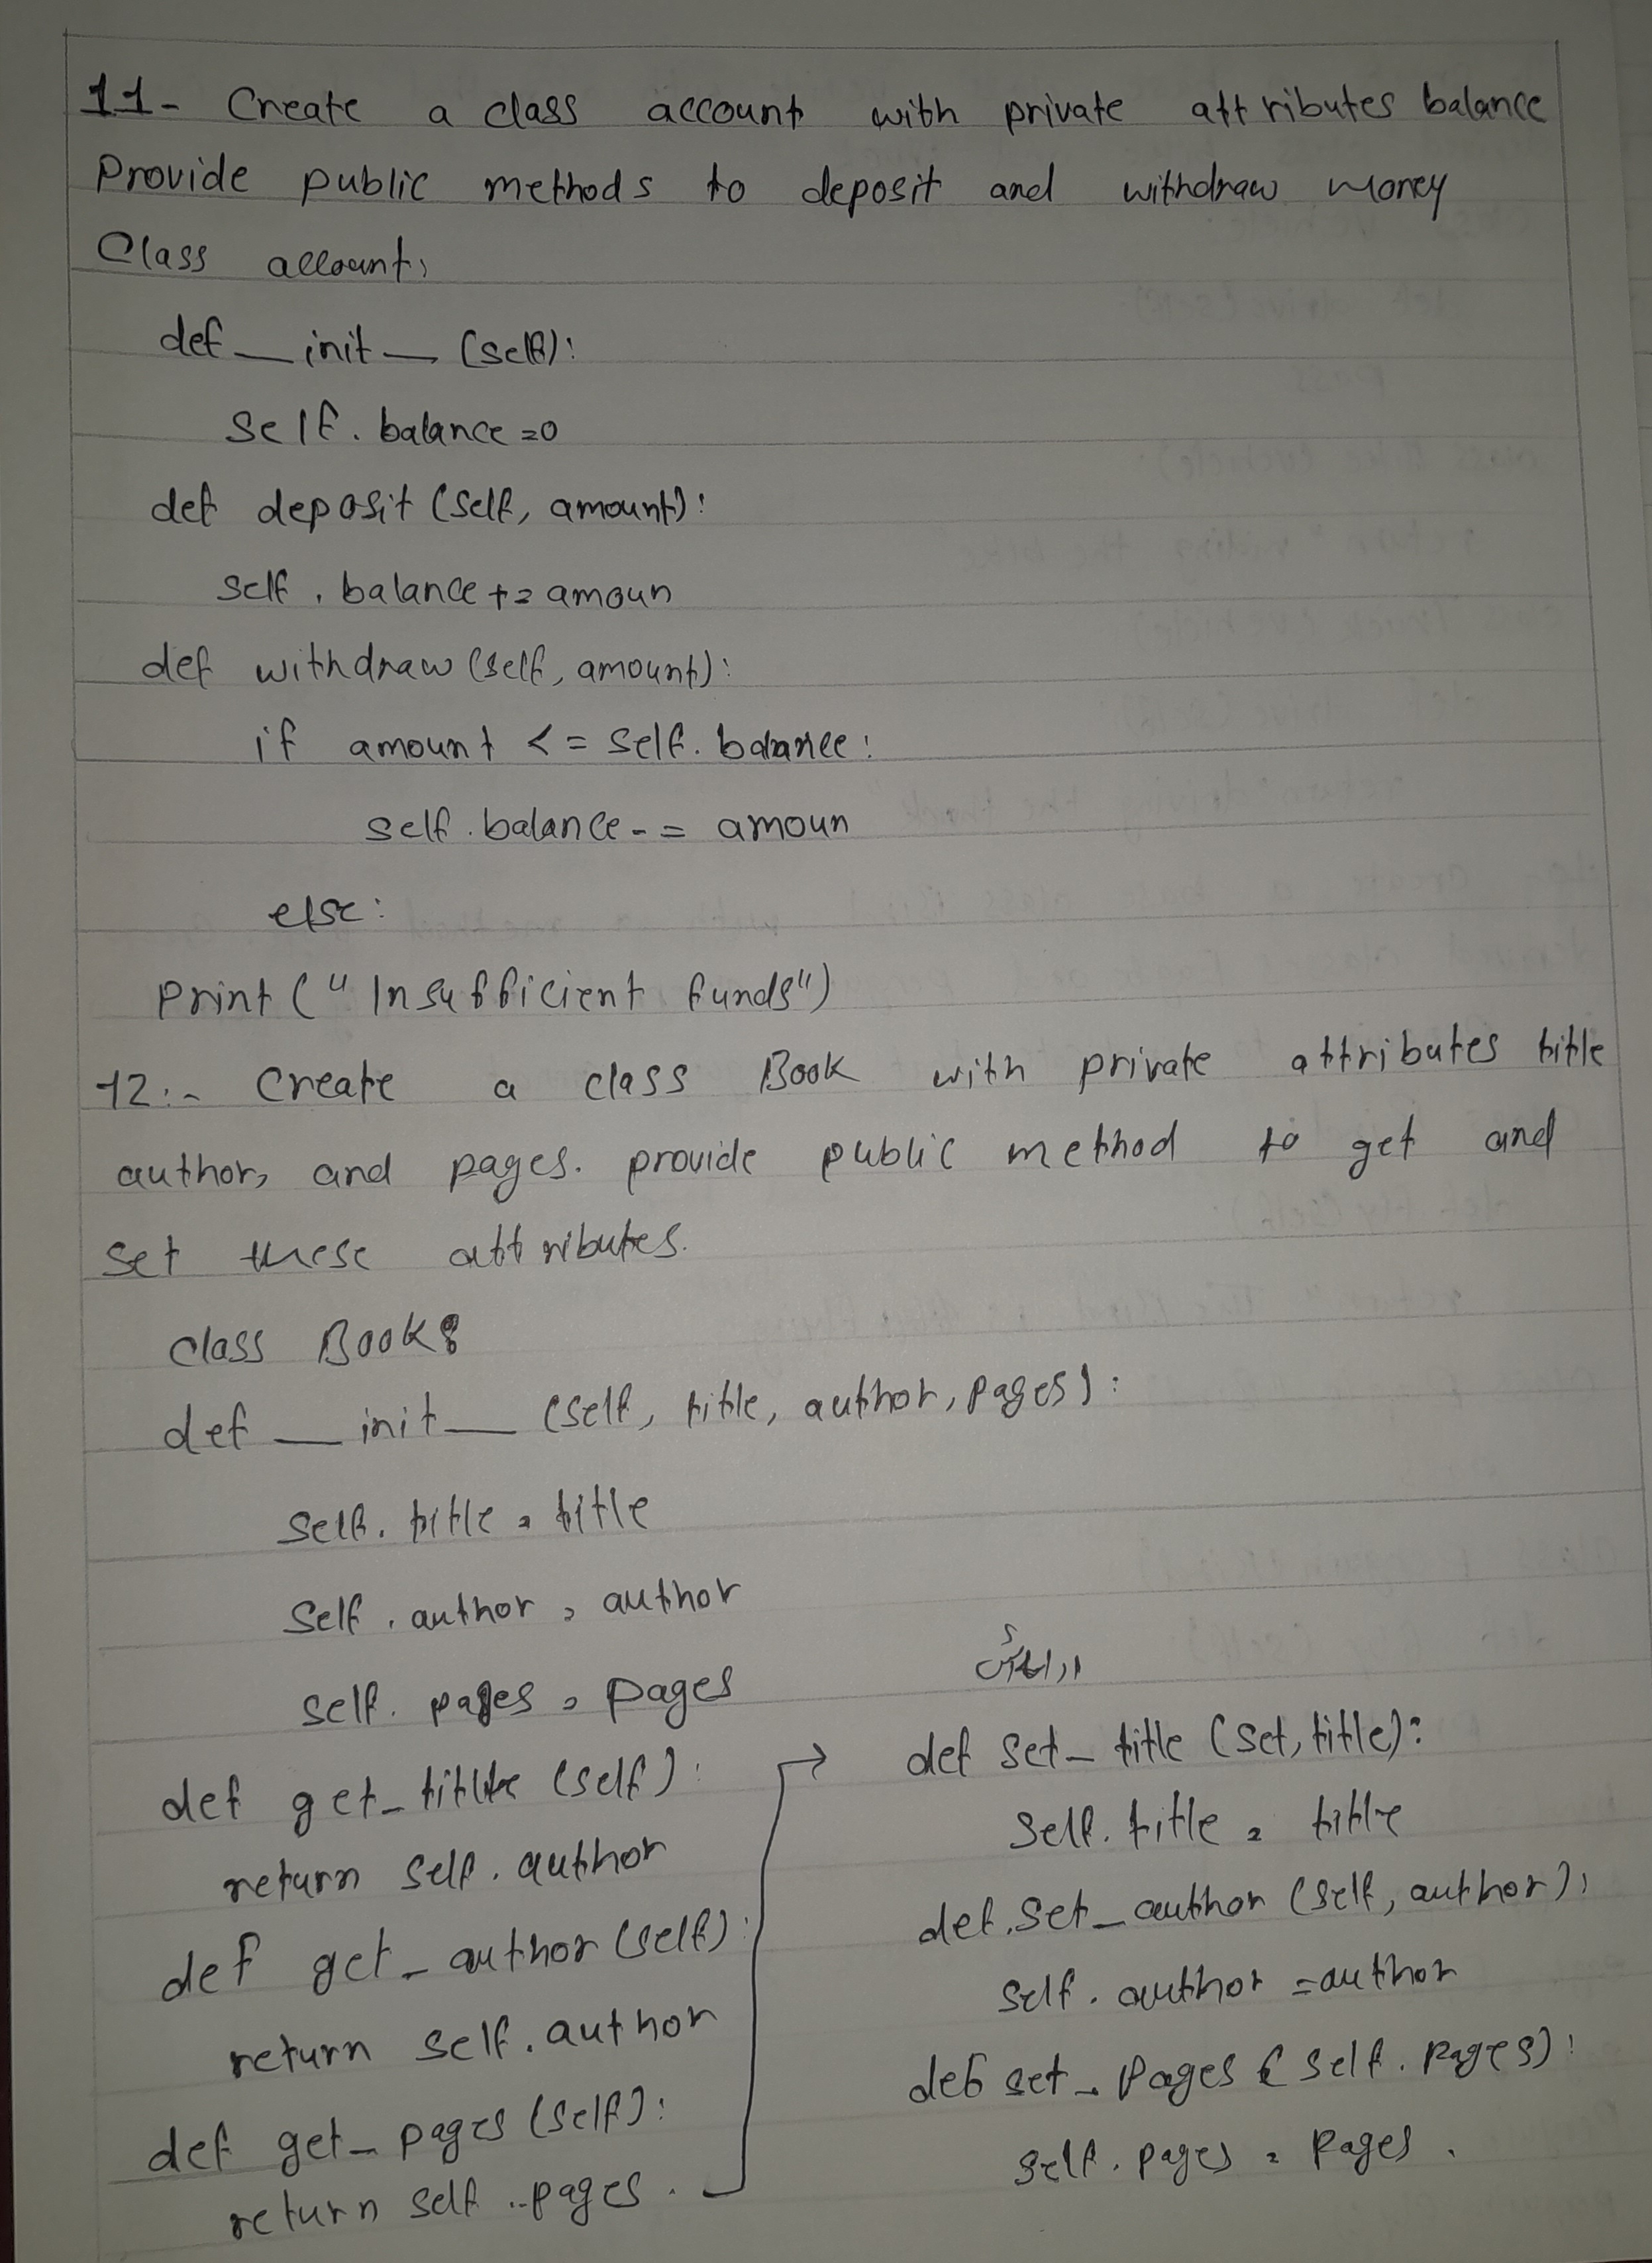 11- Create a class account with private attributes balance
Provide public methods to deposit and withdraw money
Class account:
def __init__ (self):
self. balance =0
def deposit (self, amount):
self. balance += amoun
def withdraw (self, amount):
if amount <= self. balance:
self. balance -= amoun
else:
Print ("Insufficient funds")
12:- Create a class Book with private attributes title
author, and pages. provide public method to get and
set these attributes.
class Book:
def __init__ (self, title, author, pages):
self. title = title
self. author = author
self. pages = pages
def get_title (self):
return self. author
def get_author (self):
return self. author
def get_pages (self):
return self ..pages.
def set_title (set, title):
self. title = title
def.set_author (self, author):
self. author = author
def set_pages ( self. pages):
self. pages = pages.